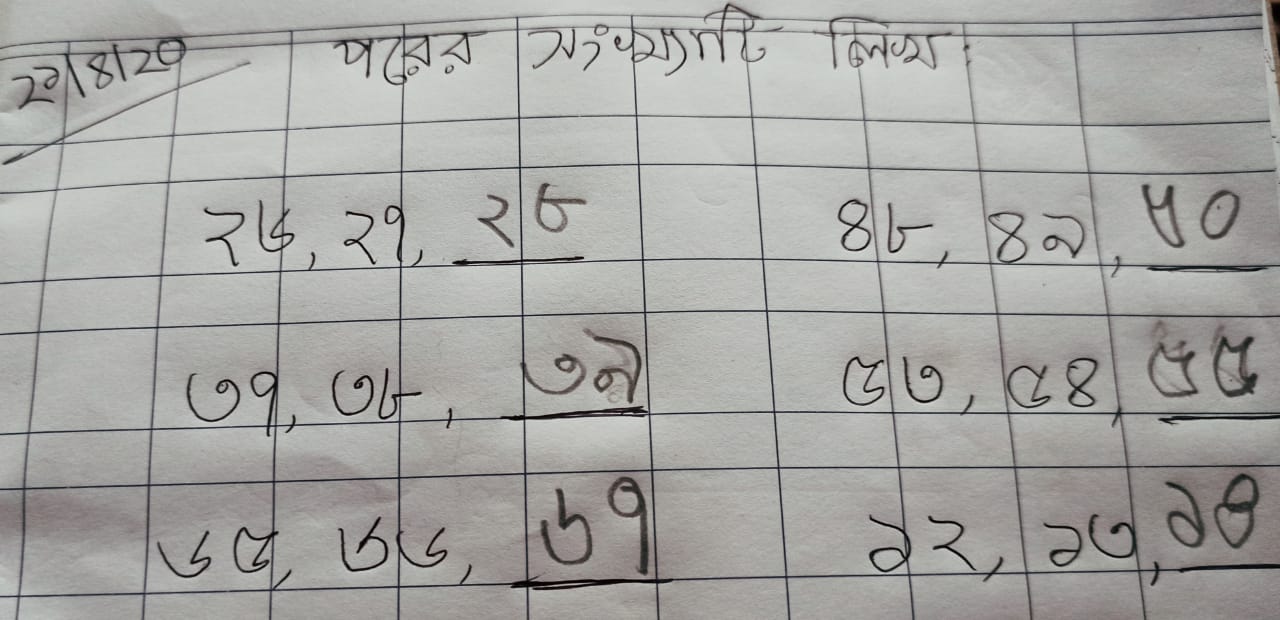 পরের সংখ্যাটি লিখ।
২৬, ২৭, ২৮ ৪৮, ৪৯, ৫০
৩৭, ৩৮, ৩৯ ৫৩, ৫৪, ৫৫
৬৫, ৬৬, ৬৭ ১২, ১৩, ১৪